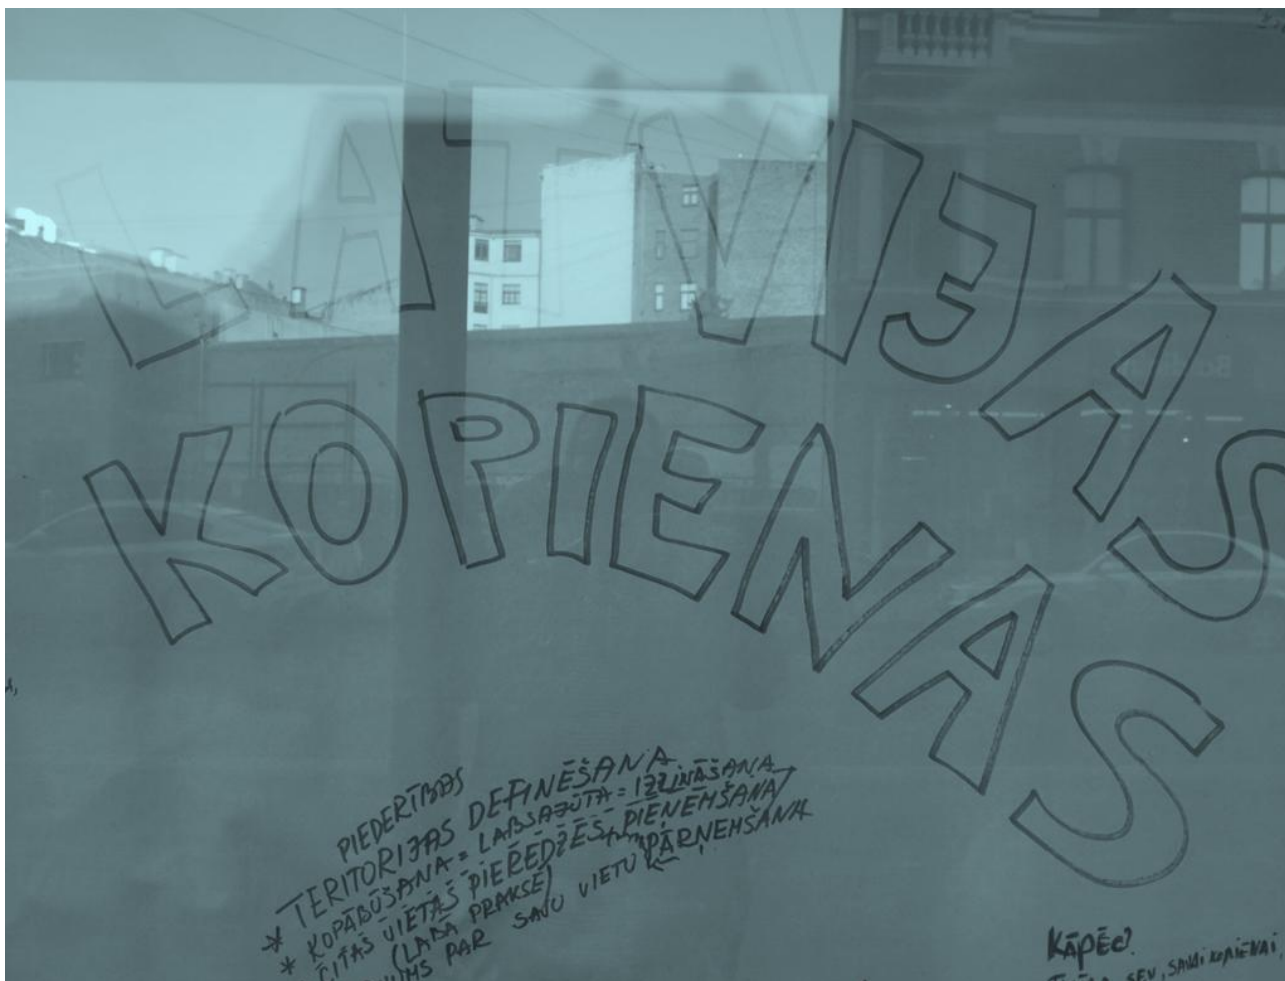 LATVIJAS
KOPIENAS
PIEDERĪBAS
TERITORIJAS DEFINĒŠANA
* KOPĀBŪŠANA = LABSAJŪTA = IZZINĀŠANA
* CITĀS VIETĀS PIEREDZES PIEŅEMŠANA/
(LABĀ PRAKSE) PĀRŅEMŠANA
PAR SAVU VIETU
KĀPĒC?
SEV, SAVAI KOPIENAI,